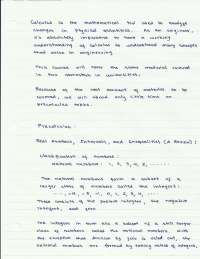 Calculus is the mathematical tool used to analyze
changes in physical quantities. As an engineer,
it's absolutely imperative to have a working
understanding of calculus to understand many concepts
that arise in engineering.
This course will cover the same material covered
in two semesters in universities.
Because of the vast amount of material to be
covered, we will spend only little time on
precalculus topics.
Precalculus:
Real Numbers, Intervals, and Inequalities (A Review):
Classification of numbers:
natural numbers: 1, 2, 3, 4, 5, ......
The natural numbers form a subset of a
larger class of numbers called the integers:
... -4, -3, -2, -1, 0, 1, 2, 3, 4, ...
These consist of the positive integers, the negative
integers, and zero.
The integers in turn are a subset of a still larger
class of numbers called the rational numbers. With
the exception that division by zero is ruled out, the
rational numbers are formed by taking ratios of integers.